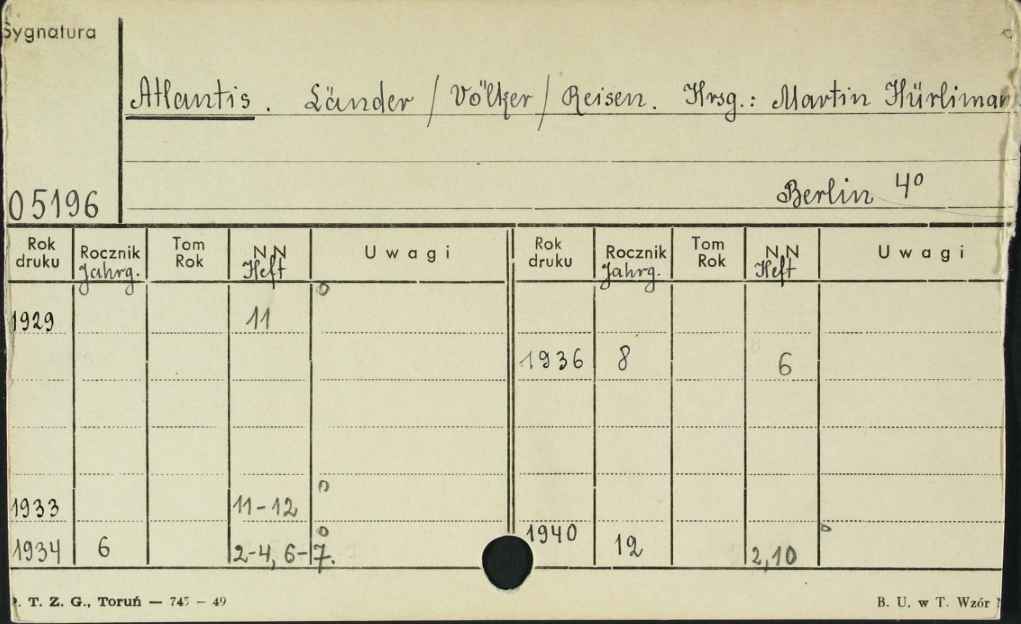 Sygnatura
Atlantis. Länder / Völker / Reisen. Hrsg.: Martin Hürliman
05196
Berlin 4º
Rok druku Rocznik Jahrg. Tom Rok NN Heft Uwagi Rok druku Rocznik Jahrg. Tom Rok NN Heft Uwagi
1929 11
1936 8 6
1933 11-12
1934 6 2-4, 6-7. 1940 12 2,10
. T. Z. G., Toruń — 745 - 49 B. U. w T. Wzór